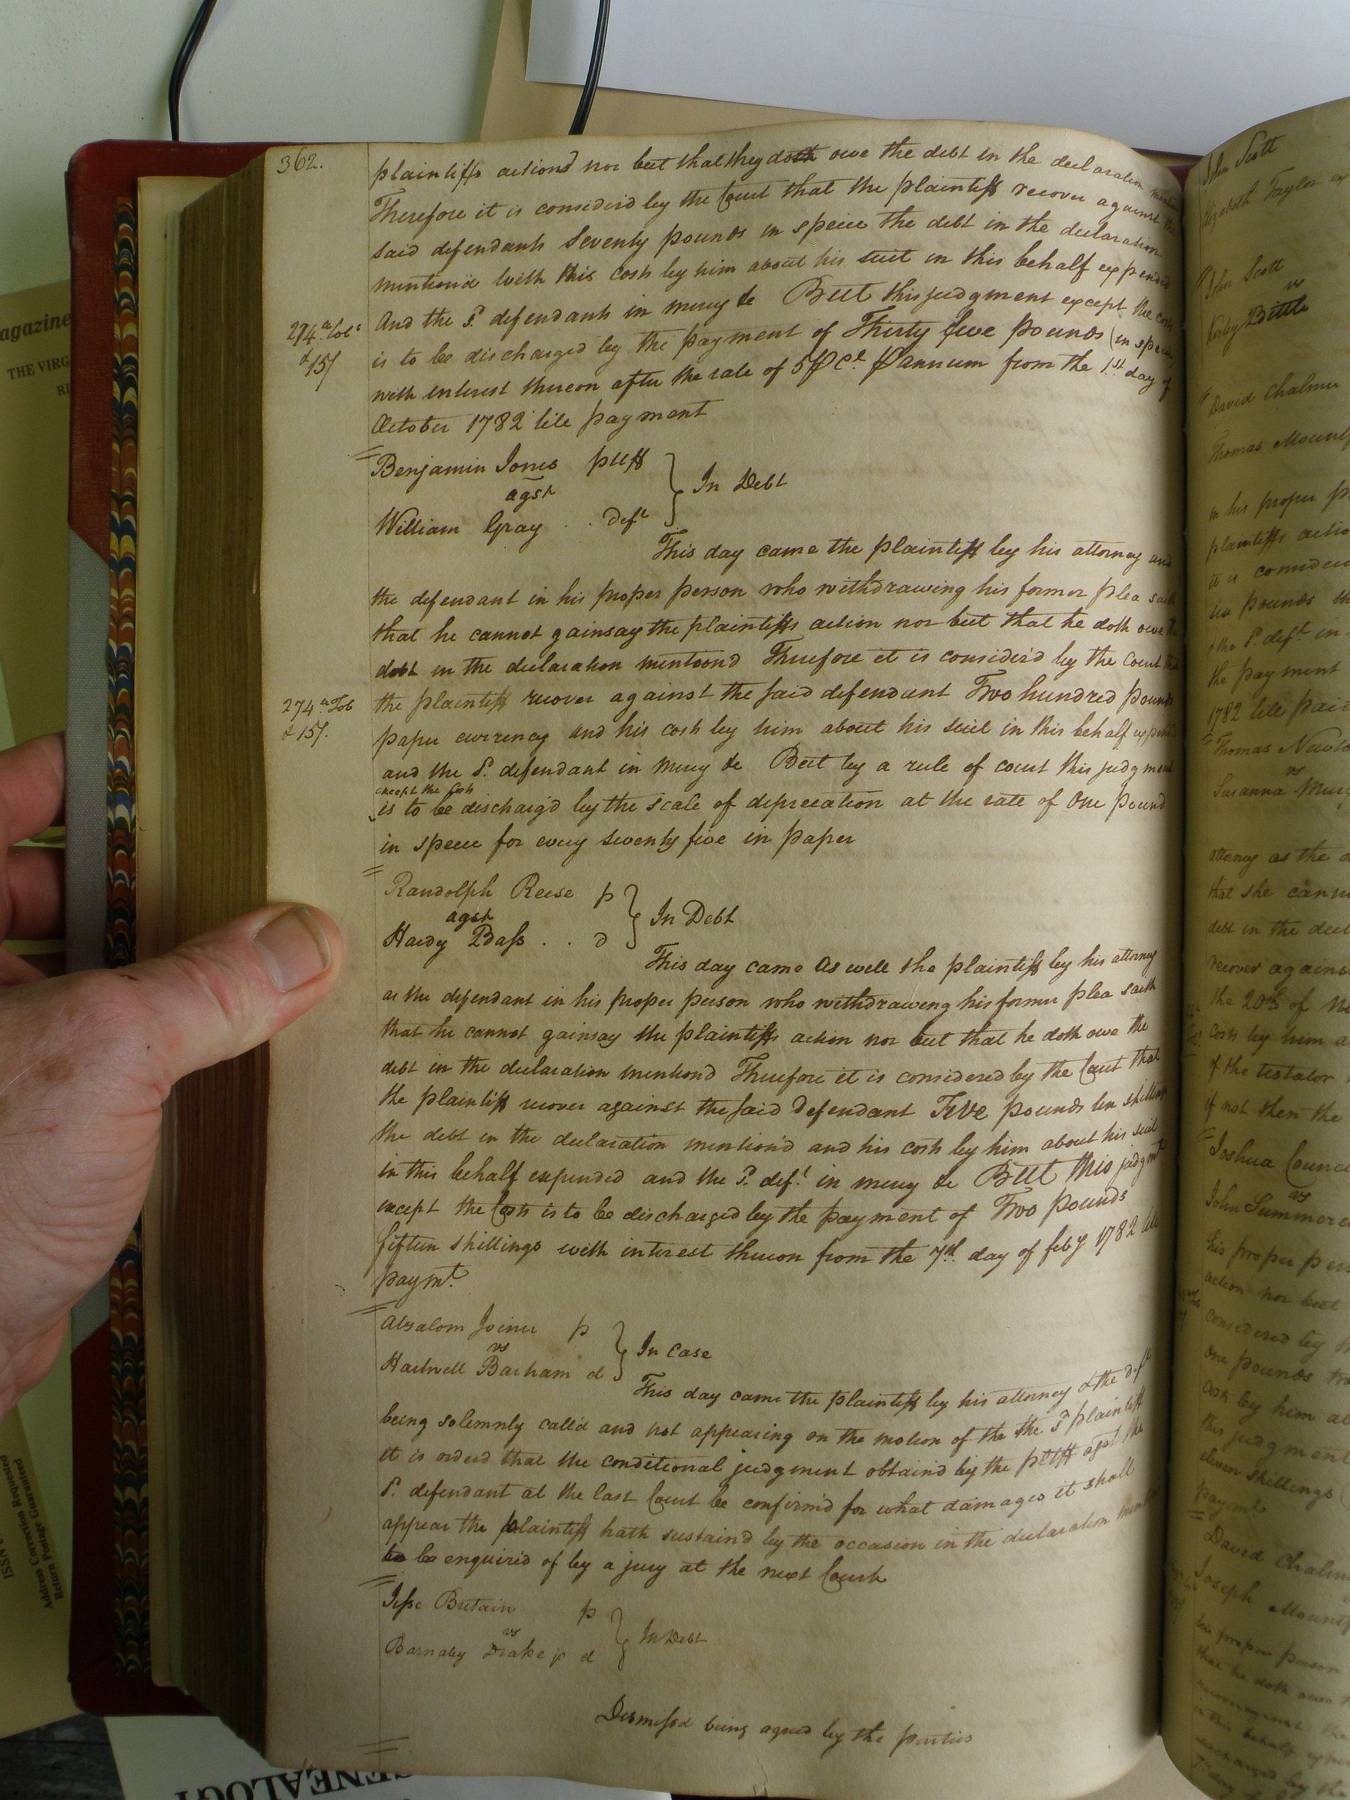 362.
plaintiffs actions nor but that they doth owe the debt in the declaration
Therefore it is considerd by the Court that the plaintiff recover against the
said defendants Seventy pounds in specie the debt in the declaration
mentiond with this costs by him about his suit in this behalf expended
And the Sd. defendants in mercy &c But this judgment except the costs
274 lb Tob
& 15/
is to be discharged by the payment of Thirty five pounds (in specie
with interest thereon after the rate of 5 P Ct P annum from the 1st day of
October 1782 till payment
Benjamin Jones pltff
agst
William Gray . . Deft
In Debt
This day came the plaintiff by his attorney and
the defendant in his proper person who withdrawing his former plea saith
that he cannot gainsay the plaintiffs action nor but that he doth owe the
debt in the declaration mentiond Therefore it is considerd by the Court that
274 lb Tob
& 15/.
the plaintiff recover against the said defendant Two hundred pounds
paper currency and his costs by him about his suit in this behalf expended
and the Sd. defendant in mercy &c But by a rule of court this judgment
except the Costs
is to be dischargd by the scale of depreciation at the rate of One pound
in specie for every seventy five in paper
Randolph Reese p
agst
Hardy Bass . . D
In Debt
This day came As well the plaintiff by his attorney
as the defendant in his proper person who withdrawing his former plea saith
that he cannot gainsay the plaintiffs action nor but that he doth owe the
debt in the declaration mentiond Therefore it is considered by the Court that
the plaintiff recover against the said Defendant Five pounds ten shillings
the debt in the declaration mention'd and his costs by him about his suit
in this behalf expended and the Sd. deft. in mercy &c But this judgmt
except the Costs is to be discharged by the payment of Two pounds
fifteen shillings with interest thereon from the 7th. day of feby 1782 till
paymt.
Absalom Joiner p
vs
Hartwell Barham d
In Case
This day came the plaintiff by his attorney & the deft
being solemnly calld and not appearing on the motion of the the Sd plaintiff
it is orderd that the conditional judgment obtaind by the pltff agst the
Sd. defendant at the last Court be confirmd for what damages it shall
appear the plaintiff hath sustaind by the occasion in the declaration
to be enquired of by a jury at the next Court
Jesse Britain p
vs
Barnaby Drake jr d
In Debt
Dismissd being agreed by the parties
John Scott
Elizabeth Taylor ex
John Scott
vs
Kirby Bittle
David Chalmer
Thomas
in his proper p
plaintiffs actio
it is consider
six pounds
& the Sd. deft in
the payment
1782 till paid
Thomas Newto
vs
Susanna
attorney as the d
that she cann
debt in the decl
recover agains
the 20th of
costs by him a
of the testator
if not then the
Joshua Counci
vs
John Summere
his proper pers
action nor but
considered by
one pounds
costs by him ab
this judgment
eleven shillings
payment
David Chalm
Joseph
his proper person
that he doth owe
agazine
THE VIRG
RI
ISSN
Address Correction Requested
Return Postage Guaranteed
GENEALOGY